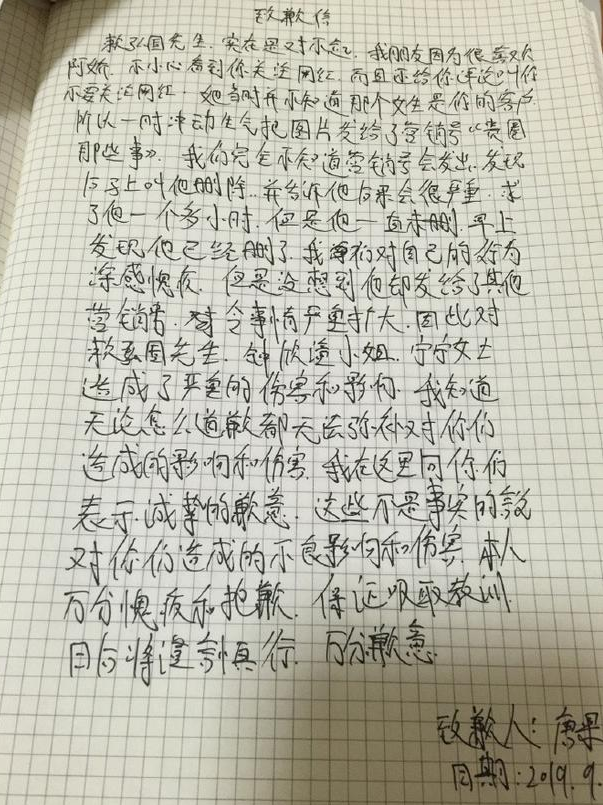 致歉信
赖弘国先生，实在是对不起，我朋友因为很喜欢
阿娇，不小心看到你关注网红，而且还给你评论叫你
不要关注网红。她当时并不知道那个女生是你的客户
所以一时冲动生气把图片发给了营销号“贵圈
那些事》，我们完全不知道营销号会发出，发现
后马上叫他删除，并告诉他后果会很严重，求
了他一个多小时，但是他一直未删，早上
发现他已经删了，我们对自己的行为
深感愧疚，但是没想到他却发给了其他
营销号，令事情严重扩大，因此对
赖弘国先生，钟欣潼小姐，宁宁女士
造成了严重的伤害和影响，我知道
无论怎么道歉都无法弥补对你们
造成的影响和伤害，我在这里向你们
表示诚挚的歉意，这些不是事实的
对你们造成的不良影响和伤害，本人
万分愧疚和抱歉，保证吸取教训
日后将谨言慎行，万分歉意。
致歉人：唐果
日期：2019.9.